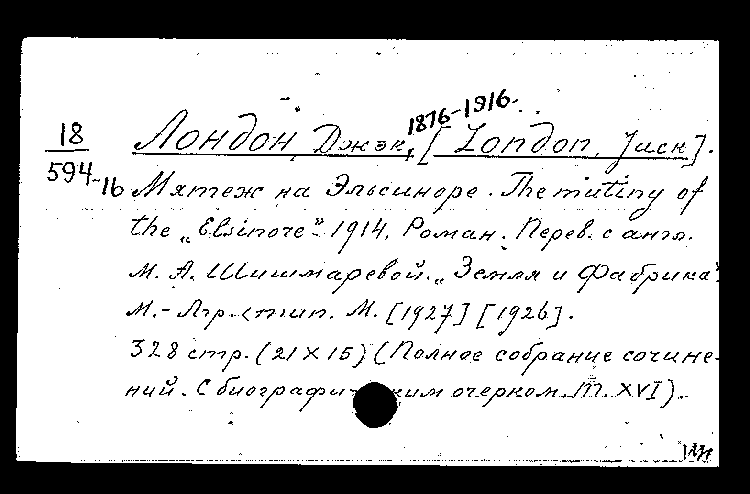 1876-1916.
18 Лондон, Джэк, [London, Jack].
594-16 Мятеж на Эльсиноре. The mutiny of
the „Elsinore” 1914. Роман. Перев. с англ.
М. А. Шишмаревой. „Земля и Фабрика”.
М.-Лгр. тип. М. [1927] [1926].
328 стр. (21X15) (Полное собрание сочине-
ний. С биографическим очерком. Т. XVI).